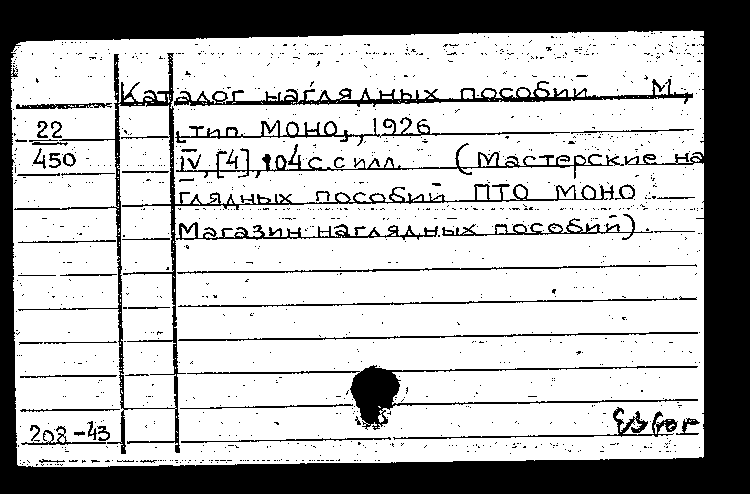 Каталог наглядных пособий. М.,
22
[тип. МОНО], 1926.
450
IV, [4], 104 с. с илл. (Мастерские на
глядных пособий ПТО МОНО
Магазин наглядных пособий).
208-43